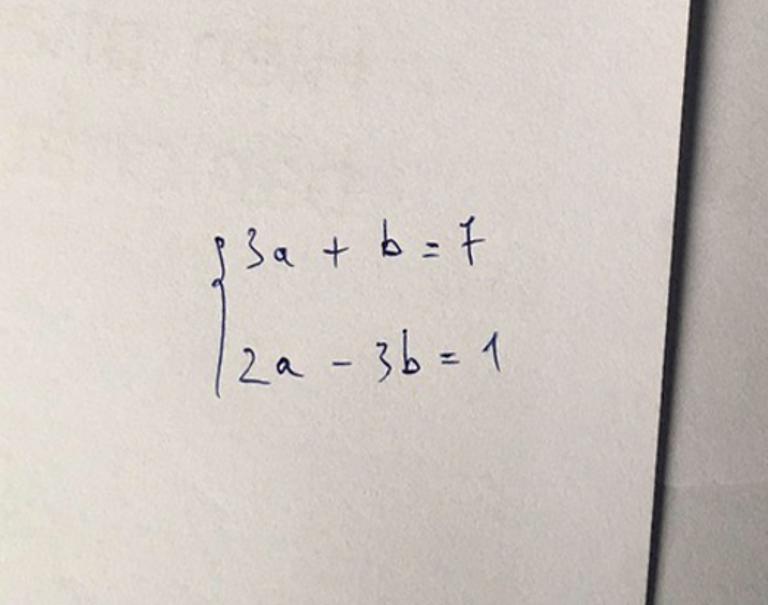 3a + b = 7
2a - 3b = 1